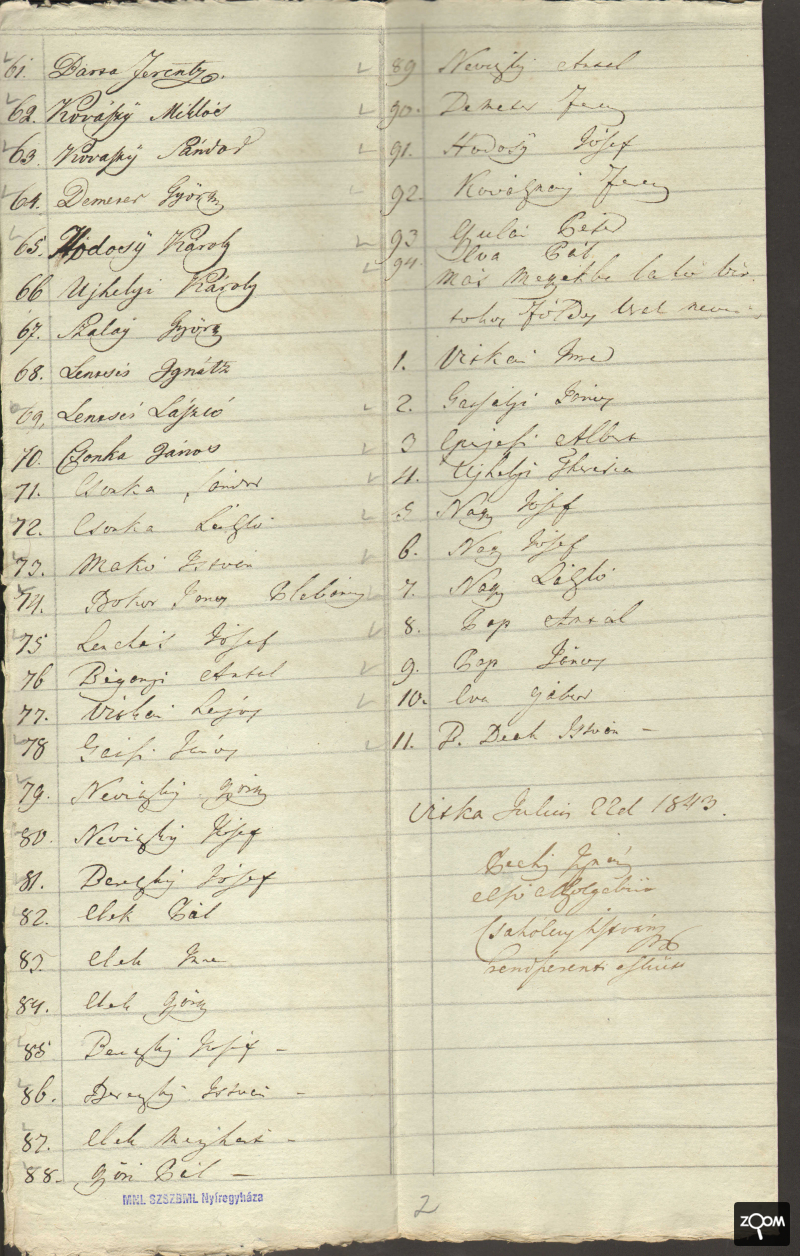 61. Darsa Ferentz.
62. Kováſsÿ Miklós
63. Kovaſsÿ Sándor
64. Demeter György
65. Hodosÿ Károly
66 Ujhelyi Károly
67. Szalaÿ György
68. Lencsés Ignátz
69. Lencsés László
70. Csonka János
71. Csonka Sándor
72. Csonka László
73. Makó István
74. Bokor János Plebános
75 Lencsés Jósef
76 Bégányi Antal
77. Viskei Lajos
78 János
79. Neviczky György
80. Neviczky Jósef
81. Bereczky Jósef
82. Elek Pál
83. Elek Imre
84. Elek György
85 Bereczky Josef –
86. Bereczky István –
87. Elek –
88. Győri Pál –
MNL SZSZBML Nyíregyháza
89 Neviczky Antal
90. Demeter Ferencz
91. Hodosÿ Jósef
92. Ferencz
93 Gulai Péter
94. Ilva Pál
más Megyékbe lakó bir-
tokos Földes Urak nevei
1. Viskei Imre
2. Gacsályi János
3 Albert
4. Ujhelyi Theresia
5 Nagy Jósef
6. Nagy Jósef
7. Nagy László
8. Pap Antal
9. Pap János
10. Ilva Gábor
11. P. Deák István –
Viska Julius 22d 1843.
Péchy Ignátz
első alszolgabiró
Csaholczy István
rendszerenti esküdt
2
ZOOM